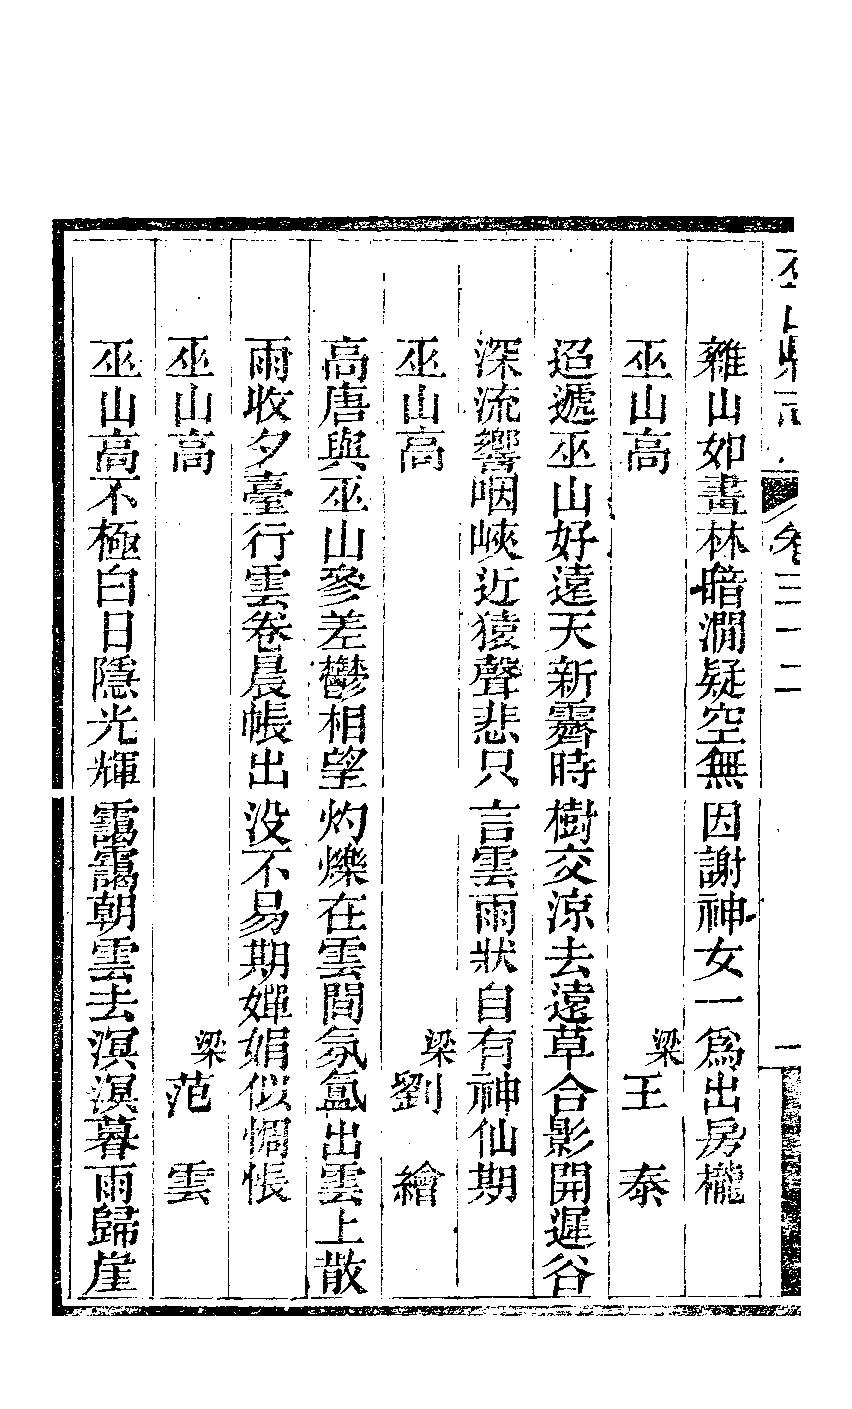 巫山縣志 卷三十二 一
雜山如畫林暗澗疑空無因謝神女一爲出房櫳
巫山高 梁王泰
迢遞巫山好遠天新霽時樹交涼去遠草合影開遲谷
深流響咽峽近猿聲悲只言雲雨狀自有神仙期
巫山高 梁劉繪
高唐與巫山參差鬱相望灼爍在雲間氛氳出雲上散
雨收夕臺行雲卷晨帳出没不易期嬋娟似惆悵
巫山高 梁范雲
巫山高不極白日隱光輝靄靄朝雲去溟溟暮雨歸崖